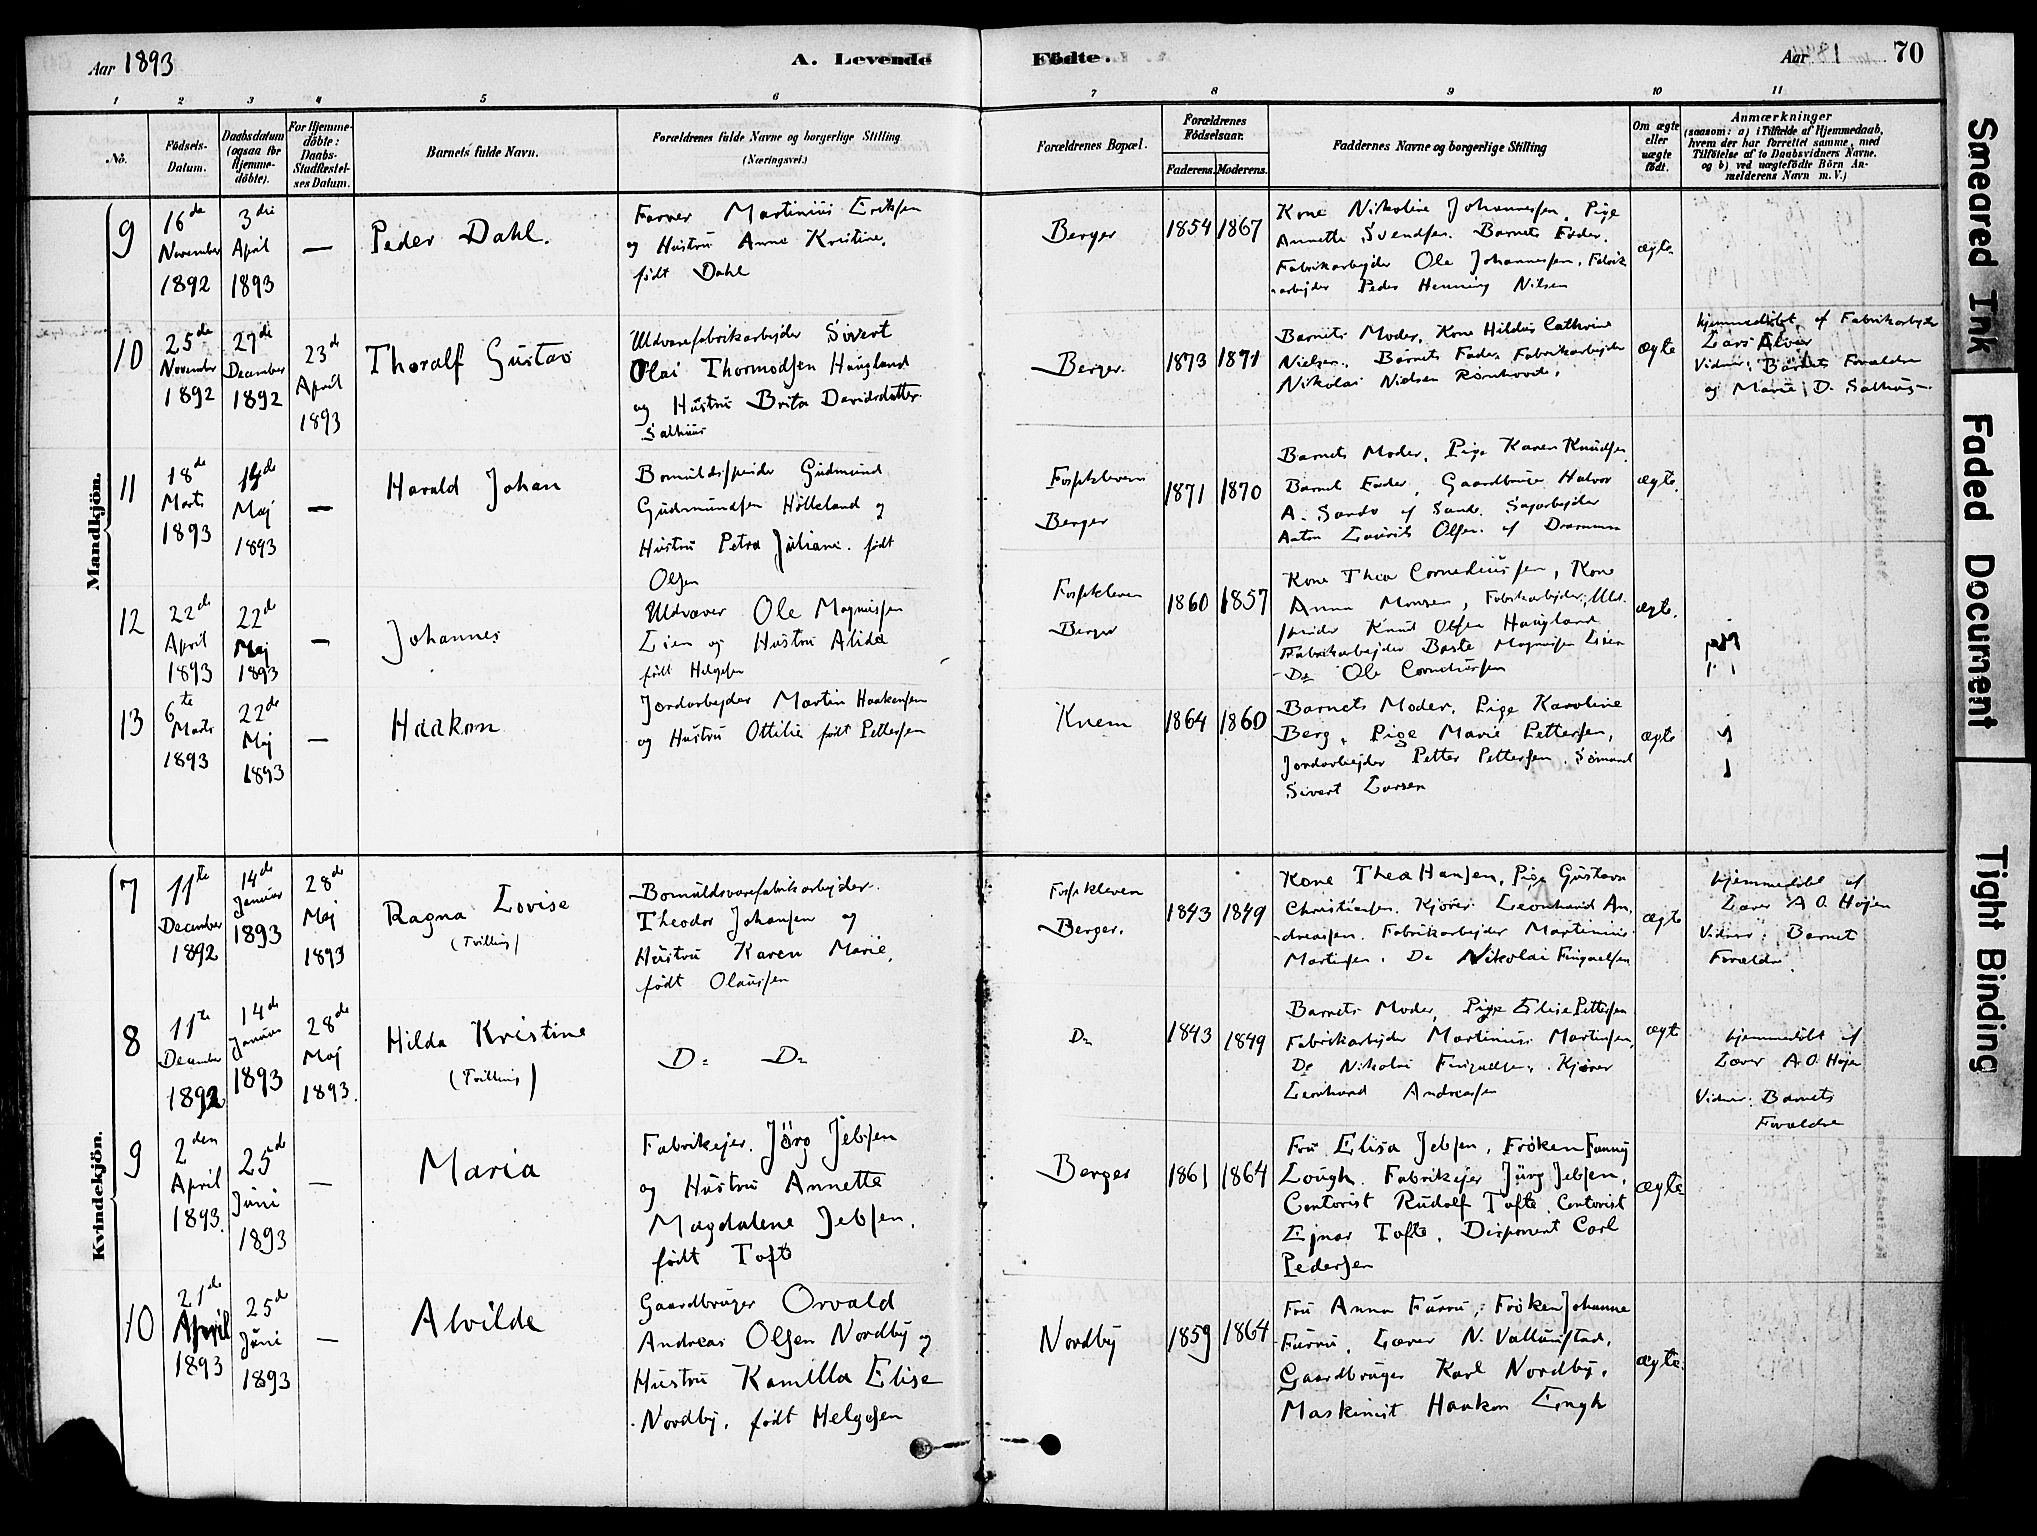 Aar 1893
A. Levende
Födte.
Aar 1
70
1 2 3 4 5 6 7 8 9 10 11
No.
Födsels-
Datum.
Daabsdatum
(ogsaa for
Hjemme-
döbte).
For Hjemme-
döbte:
Daabs-
Stadfæstel-
ses Datum.
Barnets fulde Navn.
Forældrenes fulde Navne og borgerlige Stilling
(Næringsvei.)
Forældrenes Bopæl.
Forældrenes
Födselsaar.
Faderens. Moderens.
Faddernes Navne og borgerlige Stilling
Om ægte
eller
uægte
födt.
Anmærkninger
(saasom: a) i Tilfælde af Hjemmedaab,
hvem der har forrettet samme, med
Tilföielse af to Daabsvidners Navne.
og b) ved uægtefödte Börn An-
melderens Navn m. V.)
Mandkjön.
9
16de
November
1892
3die
April
1893
—
Peder Dahl.
Farver Martinius Eriksen
og Hustru Anna Kristine,
født Dahl
Berger
1854 1867
Kone Nikoline Johannessen, Pige
Annette Svendsen. Barnets Fader.
Fabrikarbejder Ole Johannessen, Fabrik
-arbejder Peder Henning Nilsen
ægte
10
25de
November
1892
27de
December
1892
23de
April
1893
Thoralf Gustav
Uldvarefabrikarbejder Sivert
Olai Thormodsen Haugland
og Hustru Brita Davidsdatter
Salhuus
Berger.
1873 1871
Barnets Moder, Kone Hildus Cathrine
Nielsen. Barnets Fader Fabrikarbejder
Nikolai Nielsen
ægte
hjemmedøbt af Fabrikarbejder
Lars Alver
Vidner: Barnets Forældre
og Marie D. Salhus
11
18de
Marts
1893
14de
Maj
1893
—
Harald Johan
Bomuldsspinder Gudmund
Gudmundsen Hölleland og
Hustru Petra Juliane. født
Olsen
Fosskleven
Berger
1871 1870
Barnets Moder, Pige Karen Knudsen
Barnets Fader, Gaardbruger Halvor
A. Sando af Sande. Sagarbejder
Anton Laurits Olsen. af Drammen
ægte.
12
22de
April
1893
22de
Maj
1893
—
Johannes
Uldvæver Ole Magnussen
Lien og Hustru Alida
født Helgesen
Fosskleven
Berger
1860 1857
Kone Thea Corneliussen, Kone
Anna Monsen, Fabrikarbejder, Uld-
spinder Knud Olsen Haugland
Fabrikarbejder Baste Magnussen Lien
Do Ole Corneliussen
ægte.
13
6te
Marts
1893
22de
Maj
1893
—
Haakon
Jordarbejder Martin Haakensen
og Hustru Ottilie født Pettersen
Knem
1864 1860
Barnets Moder, Pige Karoline
Berg, Pige Marie Pettersen,
Jordarbejder Petter Pettersen. Sømand
Sivert Larsen
ægte
Kvindekjön.
7
11te
December
1892
14de
Januar
1893
28de
Maj
1893
Ragna Lovise
(Tvilling)
Bomuldsvarefabrikarbejder
Theodor Johansen og
Hustru Karen Marie,
født Olaussen
Fosskleven
Berger.
1843 1849
Kone Thea Hansen, Pige Gustava
Christiansen. Kjører Leonhard An-
dreassen. Fabrikarbejder Martinius
Martinsen. Do Nikolai Fingalsen
ægte
hjemmedøbt af
Lærer A O. Højen
Vidner: Barnets
Forældre.
8
11te
December
1892
14de
Januar
1893
28de
Maj
1893.
Hilda Kristine
(Tvilling)
Do Do
Do
1843 1849
Barnets Moder, Pige Elise Pettersen
Fabrikarbejder Martinius Martinsen,
Do Nikolai Fingalsen, Kjører
Leonhard Andreassen
ægte
hjemmedøbt af
Lærer A.O. Højen
Vidner. Barnets
Forældre
9
2den
April
1893.
25de
Juni
1893
—
Maria
Fabrikejer. Jörg Jebsen
og Hustru Annette
Magdalene Jebsen,
født Tofte
Berger
1861 1864
Fru Elisa Jebsen, Frøken Fanny
Lough. Fabrikejer Jürg Jebsen,
Contorist Rudolf Tofte. Contorist
Ejnar Tofte. Disponent Carl
Pedersen
ægte
10
21de
April
1893
25de
Juni
1893
—
Alvilde
Gaardbruger Orvald
Andreas Olsen Nordby og
Hustru Kamilla Elise
Nordby, født Helgesen
Nordby
1859 1864
Fru Anna Furru, Frøken Johanne
Furru, Lærer N. Vallunstad,
Gaardbruger Karl Nordby,
Maskinist Haakon Engh
ægte.
Smeared Ink
Faded Document
Tight Binding